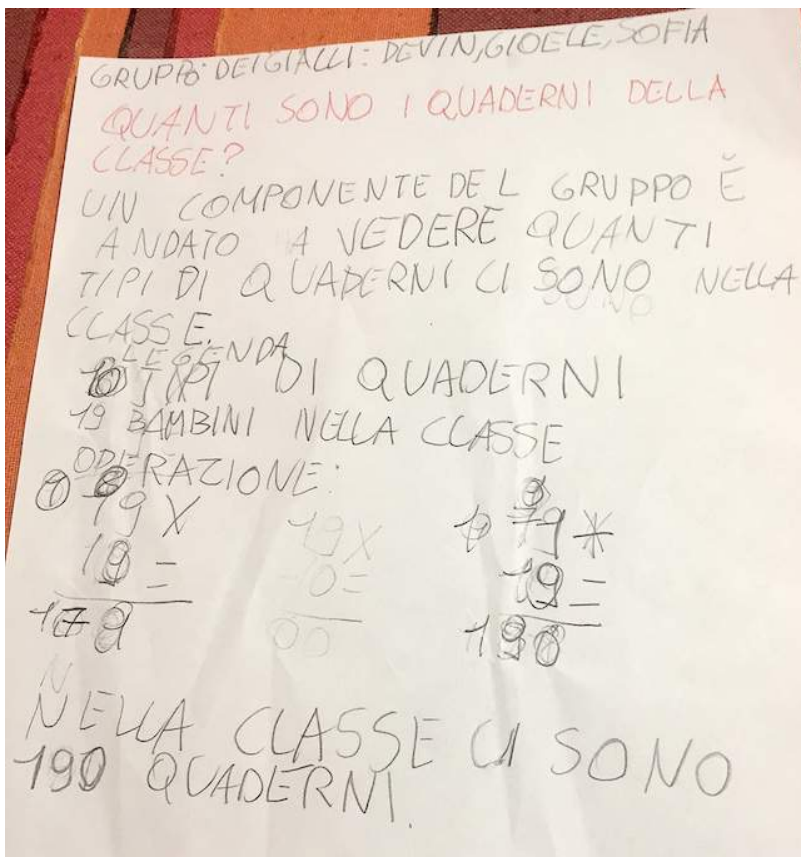 GRUPPO DEI GIALLI: DEVIN, GIOELE, SOFIA
QUANTI SONO I QUADERNI DELLA
CLASSE?
UN COMPONENTE DEL GRUPPO È
ANDATO A VEDERE QUANTI
TIPI DI QUADERNI CI SONO NELLA
CLASSE.
LEGENDA
10 TIPI DI QUADERNI
19 BAMBINI NELLA CLASSE
OPERAZIONE:
19 X
=
19 X
10=
00
190
NELLA CLASSE CI SONO
190 QUADERNI.